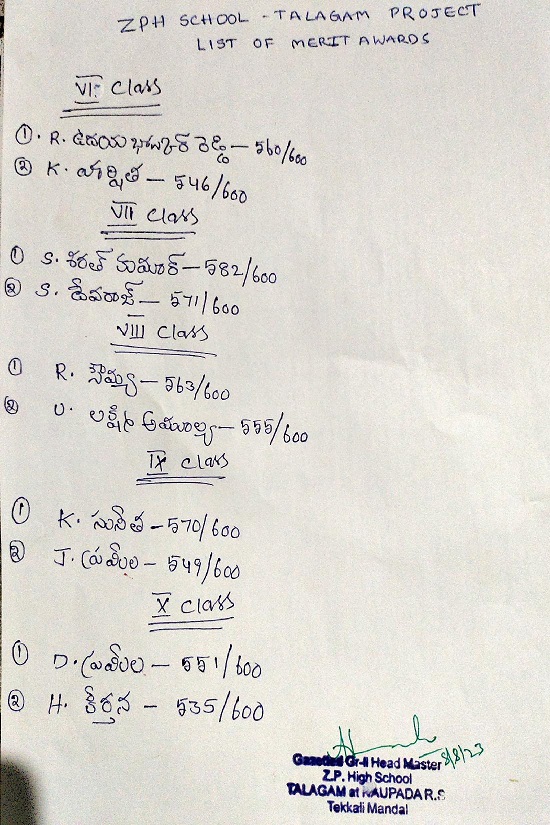 ZPH SCHOOL - TALAGAM PROJECT
LIST OF MERIT AWARDS
VI. Class
① . R. ఉదయ భాస్కర్ రెడ్డి — 560/600
② K. హర్షిత — 546/600
VII Class
① S. శరత్ కుమార్ — 582/600
② S. దేవరాజ్ — 571/600
VIII Class
① R. సౌమ్య — 563/600
② U. లక్ష్మీ అమూల్య — 555/600
IX Class
① K. సునీత — 570/600
② J. ప్రమీల — 549/600
X Class
① D. ప్రమీల — 551/600
② H. కీర్తన — 535/600
8/8/23
Gazetted Gr-II Head Master
Z.P. High School
TALAGAM at NAUPADA R.S
Tekkali Mandal